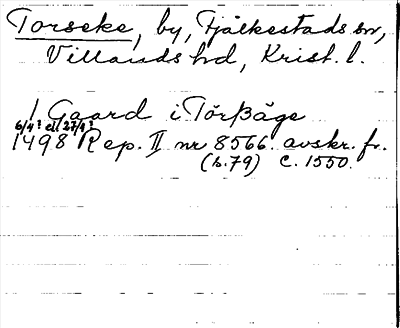 Torseke, by, Fjälkestads sn,
Villands hd, Krist. l.
1 Gaard i Törßäge
6/4? el. 27/4?
1498 Rep. II nr 8566. avskr. fr.
(s. 79) c. 1550.